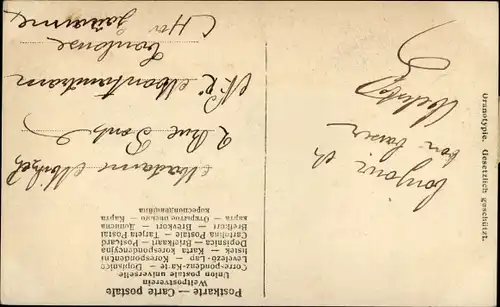 Postkarte — Carte postale
Weltpostverein
Union postale universelle
Correspondenz-Karte — Dopisnice
Levelező-Lap — Korespondenční
lístek — Karta korespondencyjna
Dopisnica — Briefkaart — Postcard
Cartolina Postale — Tarjeta Postal
Brefkort — Brevkort —
карта — Открытое письмо — Карта
Madame
2 Rue
Montaudran
Toulouse
Garonne
bonjour et
bon baiser
Uranotypie. Gesetzlich geschützt.